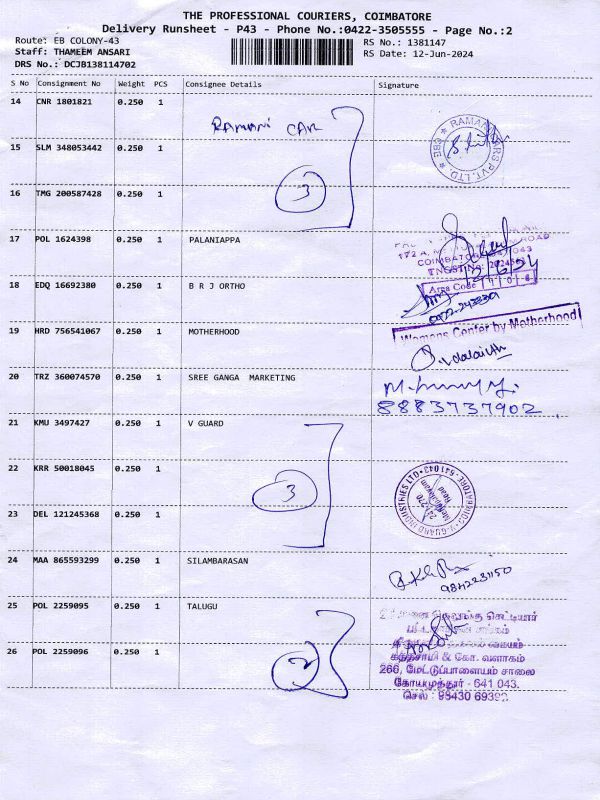 THE PROFESSIONAL COURIERS, COIMBATORE
Delivery Runsheet - P43 - Phone No.:0422-3505555 - Page No.:2
Route: EB COLONY-43 RS No.: 1381147
Staff: THAMEEM ANSARI RS Date: 12-Jun-2024
DRS No.: DCJB138114702
S No Consignment No Weight PCS Consignee Details Signature
14 CNR 1801821 0.250 1
RAMANI CAR
15 SLM 348053442 0.250 1
RAMANI CARS PVT. LTD. CBE
16 TMG 200587428 0.250 1
3
17 POL 1624398 0.250 1 PALANIAPPA
COIMBATORE 641 043
TNGST No:
18 EDQ 16692380 0.250 1 B R J ORTHO
Area Code
19 HRD 756541067 0.250 1 MOTHERHOOD
Womens Center by Motherhood
20 TRZ 360074570 0.250 1 SREE GANGA MARKETING
8883737902
21 KMU 3497427 0.250 1 V GUARD
22 KRR 50018045 0.250 1
3
V-GUARD INDUSTRIES LTD
COIMBATORE-641043
23 DEL 121245368 0.250 1
24 MAA 865593299 0.250 1 SILAMBARASAN
9842231150
25 POL 2259095 0.250 1 TALUGU
26 POL 2259096 0.250 1
2
கந்தசாமி & கோ. வளாகம்
266, மேட்டுப்பாளையம் சாலை
கோயமுத்தூர் - 641 043.
செல் : 98430 69392